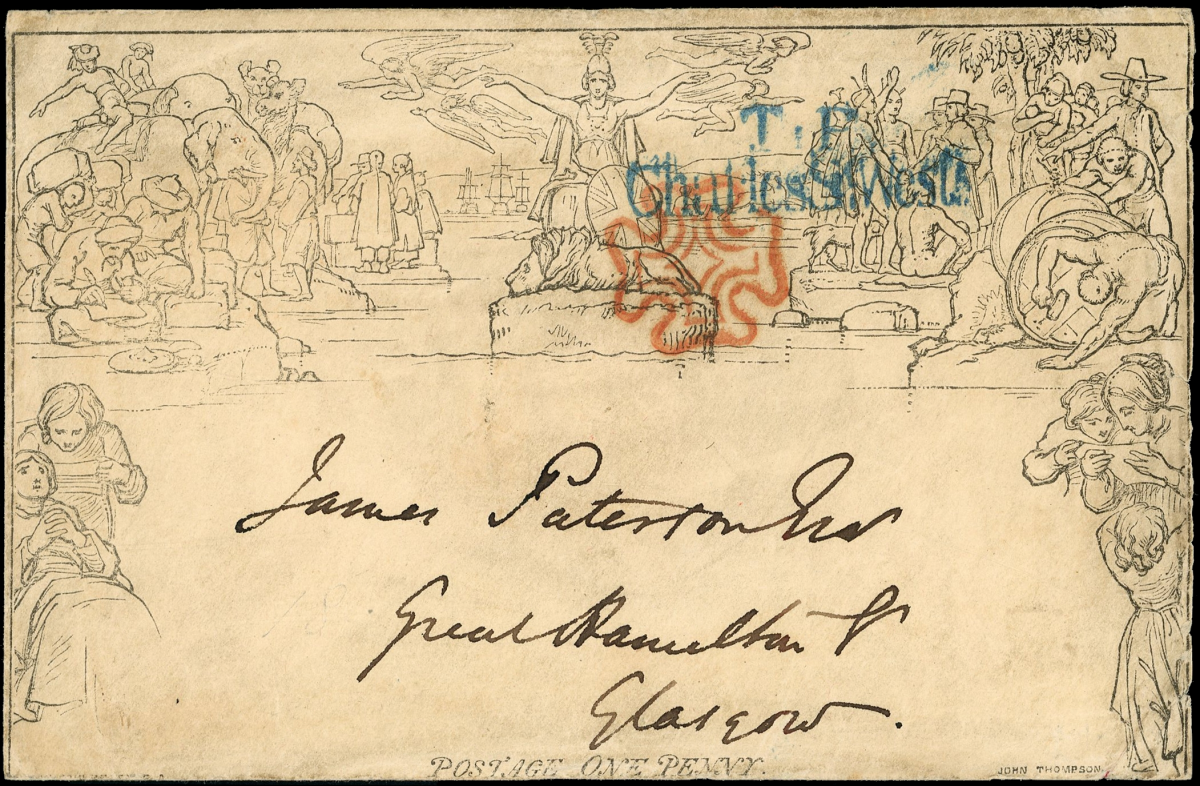 T.P.
Charles St West
James Paterson Esq
Great Hamilton St
Glasgow.
POSTAGE ONE PENNY.
JOHN THOMPSON